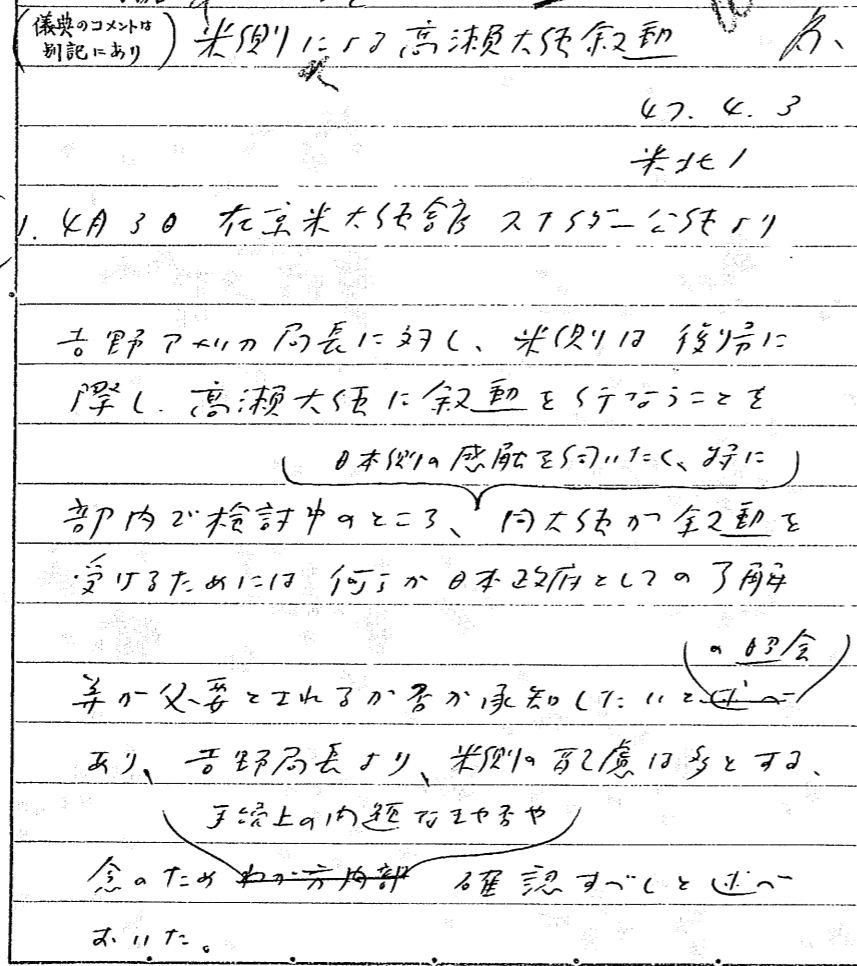 (儀典のコメントは
別記にあり)
米側による高瀬大使叙勲
47. 4. 3
米北1
1. 4月3日 在京米大使館 スナイダー公使より
吉野アメリカ局長に対し、米側は復帰に
際し、高瀬大使に叙勲を行なうことを
日本側の感触を伺いたく、特に
部内で検討中のところ、同大使が叙勲を
受けるためには何らか日本政府としての了解
の照会
等が必要とされるか否か承知したいと述べ
あり、吉野局長より、米側の配慮は多とする、
手続上の問題なきや否や
念のためわが方内部 確認すべしと述べ
おいた。